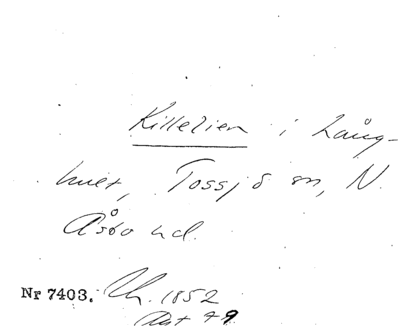 Killelien i Lång-
huet, Tossjö sn, N.
Åsbo hd.
Nr 7403. Uh. 1852
Akt 49